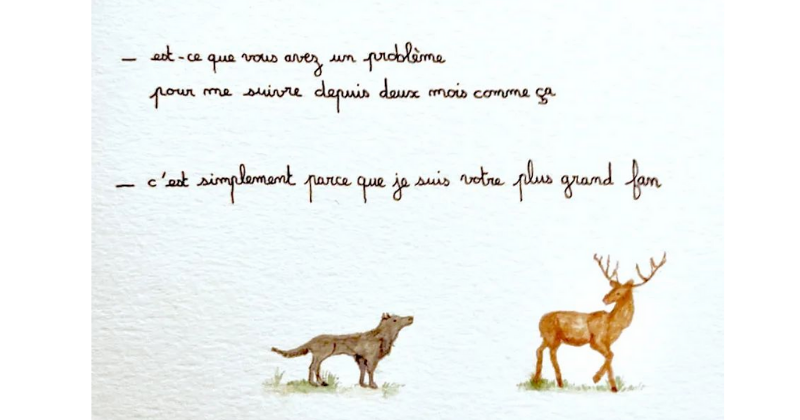 – est-ce que vous avez un problème
pour me suivre depuis deux mois comme ça
– c'est simplement parce que je suis votre plus grand fan